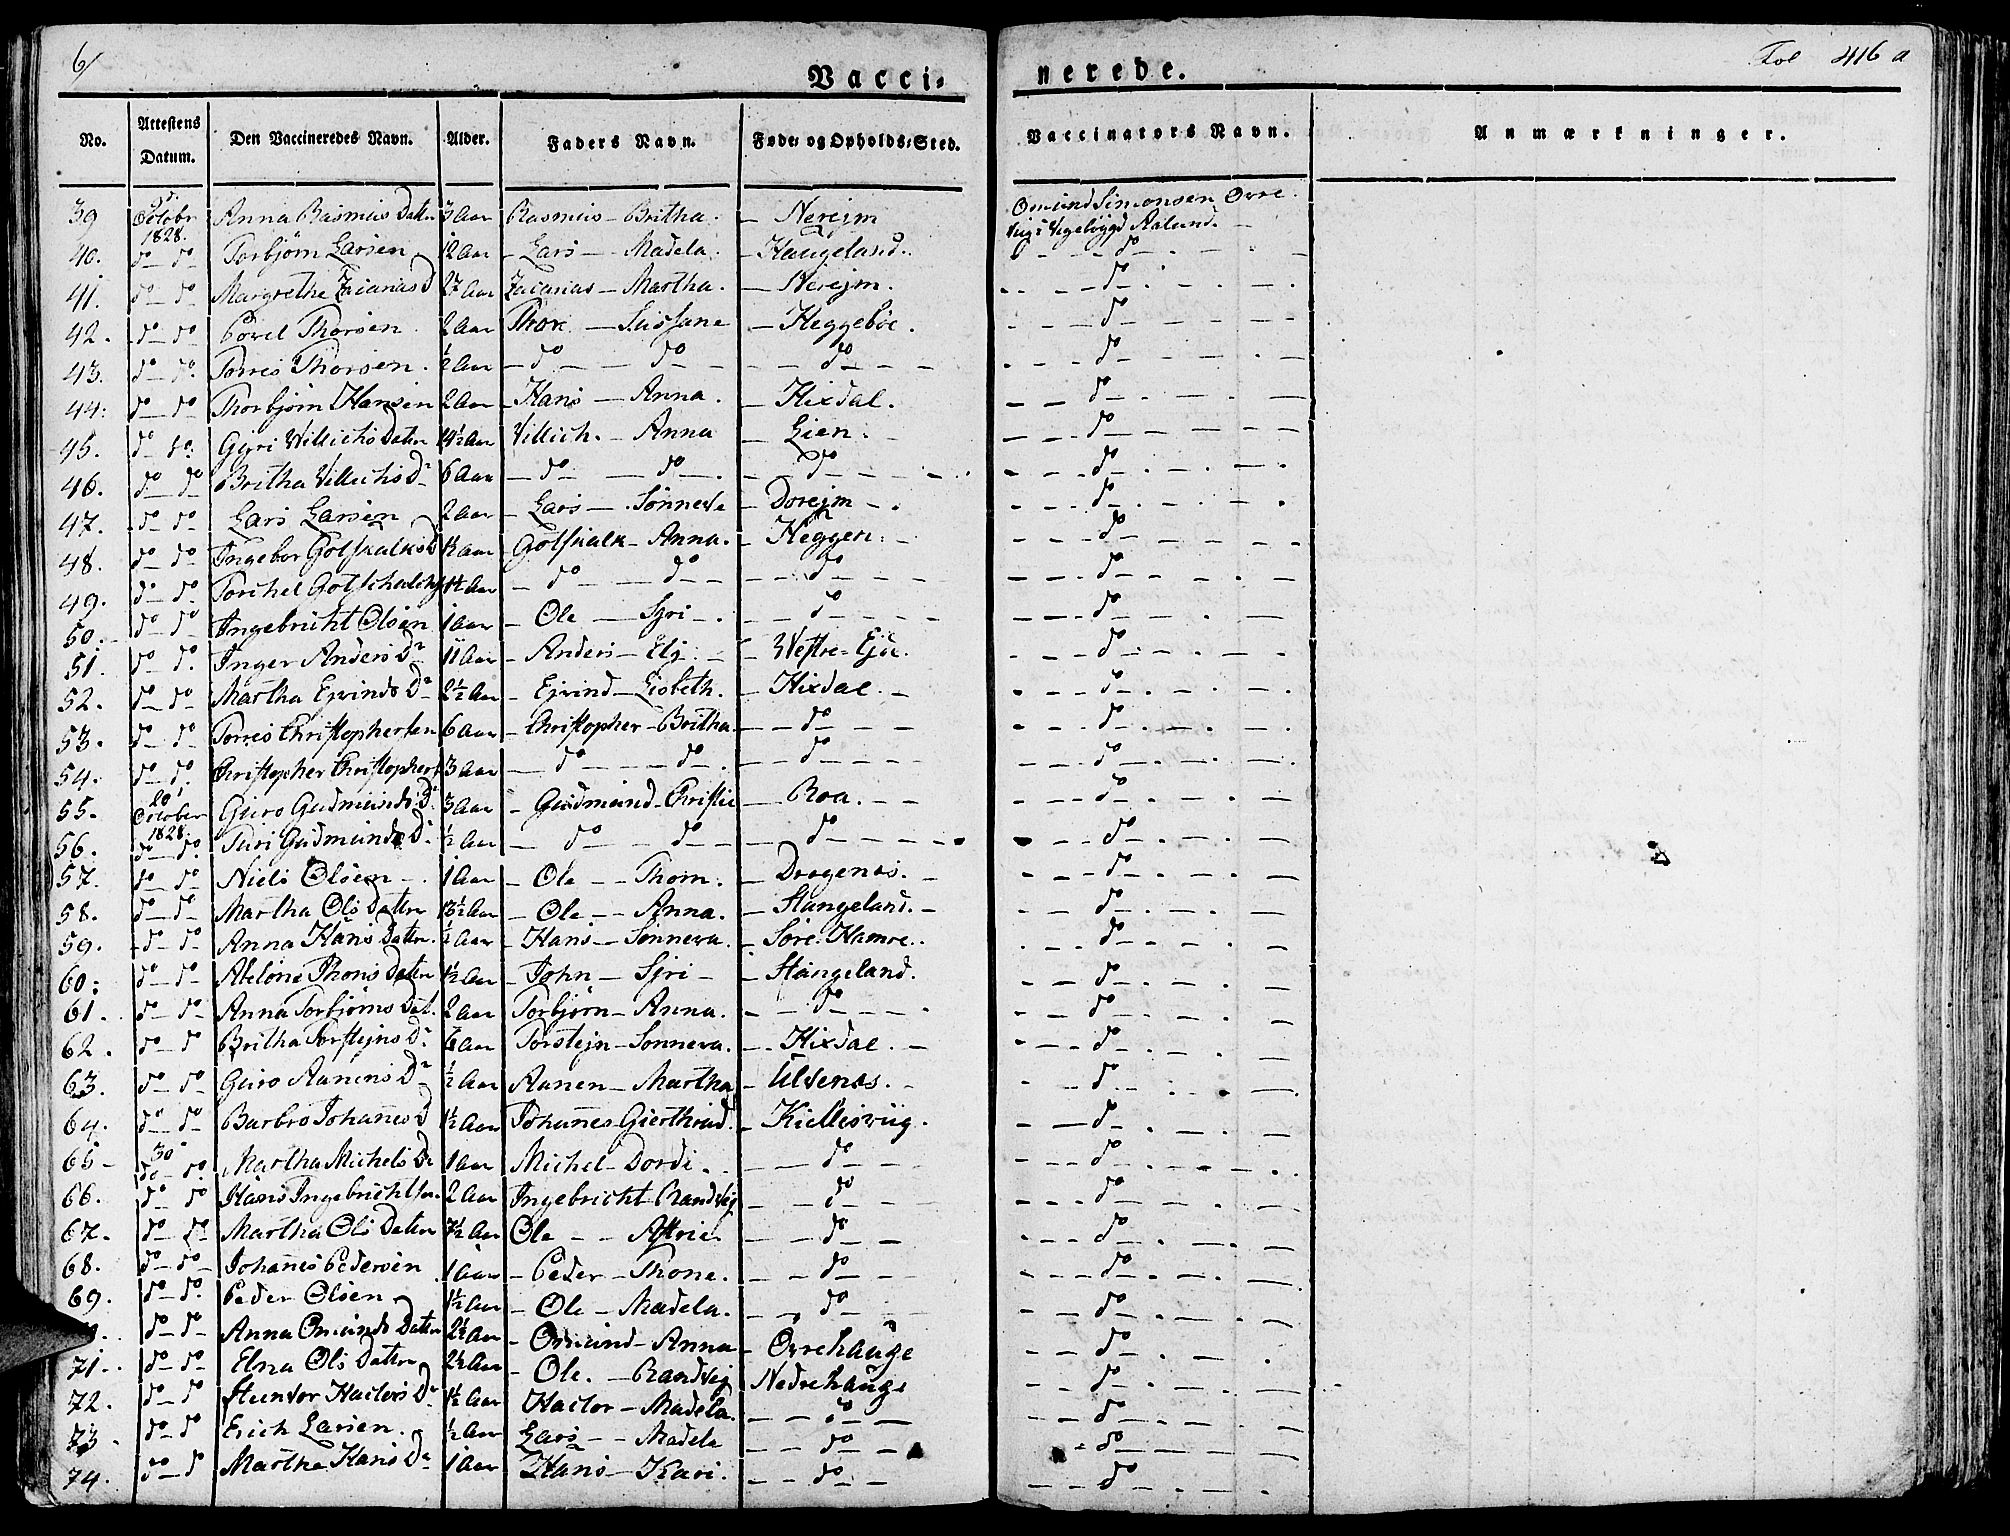 6/
Vacci-
nerede.
Fol 416 a
No. Attestens Datum. Den Vaccineredes Navn. Alder. Faders Navn. Føde- og Opholds-Sted. Vaccinators Navn. Anmærkninger.
39 October 1828. Anna Rasmus Datter 3 Aar Rasmus - Britha. - Nerejm Omund Simonsen Øvre
40. do - do Torbjørn Larsen 12 Aar - Lars - Madela. - Haugeland. - do -
41. do - do Margrethe Aar Zacarias - Martha. - Nerejm. - do -
42. do - do Povel Thorsen 2 Aar Thor - Sussane - Heggebøe. - do -
43. do - do Torres Thorsen. ½ Aar - do - do - - do - - do -
44. do - do Thorbjørn Hansen 2 Aar - Hans - Anna. - Hixdal. - do -
45. do do Guri Villichs Datter 14½ Aar Villich. - Anna - Lien. - do -
46. do - do Britha Villichs Dr 6 Aar - do - do - - do - - do -
47. do - do Lars Larsen 2 Aar - Lars - Sønneva - Dorejm - - do -
48. do - do Ingebor Gotskalks D Aar Gotskalk - Anna. - Heggen. - do -
49. do - do Torchel Aar - do - do - - do - - do -
50. do - do Ingebricht Olsen 1 Aar - Ole - Sjri - - do - - do -
51. do - do. Inger Anders Dr 11 Aar - Anders - Elj - Westre - Ejde. - do -
52. do - do Martha Ejvinds Dr 2½ Aar - Ejvind - Lisbeth. - Hixdal. - - do -
53. do - do Torres Christophersen 6 Aar - Christopher - Britha - do - - do -
54. do - do Christopher Christophers 3 Aar - do - do - - do - - do -
55. 20 October 1828. Guro Gudmunds Dr 3 Aar - Gudmund - Christie - Roa. - - do -
56. do - do. Turi Gudmunds Dr ½ Aar - do - do - - do - - do -
57. do - do Niels Olsen - 1 Aar - Ole - Thorn. - Dragenes. - - do -
58. do - do Martha Ols Datter 13½ Aar - Ole - Anna. - Stangeland. - - do -
59. do - do Anna Hans Datter. ½ Aar - Hans - Sønneva. - Søre Hamre. - do -
60. do - do Abelone Thons Datter 1½ Aar - John - Sjri - - Stangeland. - do -
61. do - do Anna Torbjørns Dat. 2 Aar Torbjørn - Anna. - do - - do -
62. do - do Britha Torstejns Dr Aar Torstejn - Sønneva. - Hixdal. - - do -
63. do - do Guro Aanens Dr ½ Aar Aanen - Martha - Ulvenes. - - do -
64. do - do Barbro Johannes D 1½ Aar Johannes Gierthrud. - Kiellesviig. - do -
65 - 30 do - do. Martha Michels Dr 1 Aar Michel - Dordi. - do - - do -
66. do - do Hans Ingebrichtsen 2 Aar Ingebricht Randvej - do - - do -
67. do - do Martha Ols Datter 7½ Aar Ole - - Astrie. - do - - do -
68. do - do Johannes Pedersen 1 Aar - Peder - Thone. - do - - do -
69. do - do Peder Olsen 1½ Aar - Ole - Madela. - do - - do -
do - do - Anna Omunds Datter 2½ Aar - Omund - Anna - Øvrehauge - do -
71. do - do Elna Ols Datter 2½ Aar - Ole. - Randvej Nedrehauge - do -
72. do - do Hactors Dr 1½ Aar Hactor - Madela. - do - - do -
73 do - do Erich Larsen. ½ Aar Lars - - Madela - do - - do -
74. do - do Martha Hans Dr 1 Aar Hans - Kari. - do - - do -